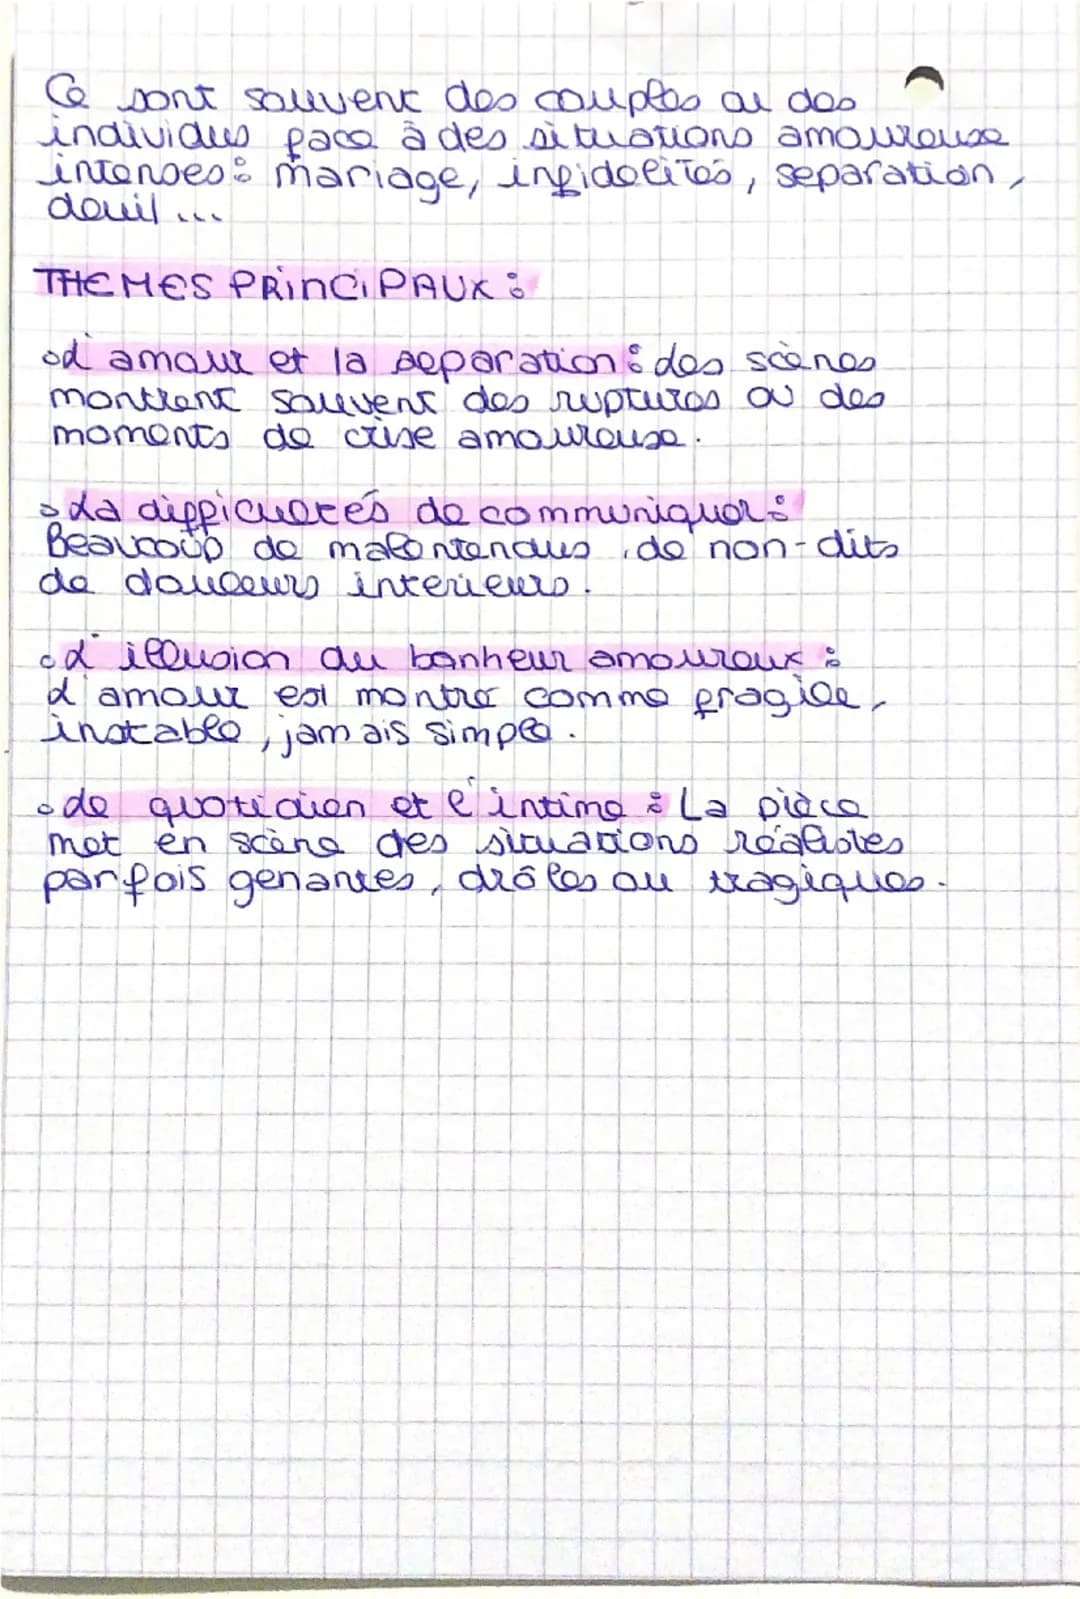 Ce sont souvent des couples ou des
individus face à des situations amoureuse
intenses : mariage, infidelités, separation,
deuil ...
THEMES PRINCIPAUX :
L'amour et la separation : des scènes
montrent souvent des ruptures ou des
moments de crise amoureuse.
La difficultés de communiquer :
Beaucoup de malentendus, de non-dits
de douleurs interieurs.
L'illusion du bonheur amoureux :
L'amour est montré comme fragile,
instable, jamais simple.
Le quotidien et l'intime : La pièce
met en scène des situations réalistes
parfois genantes, drôles ou tragiques.